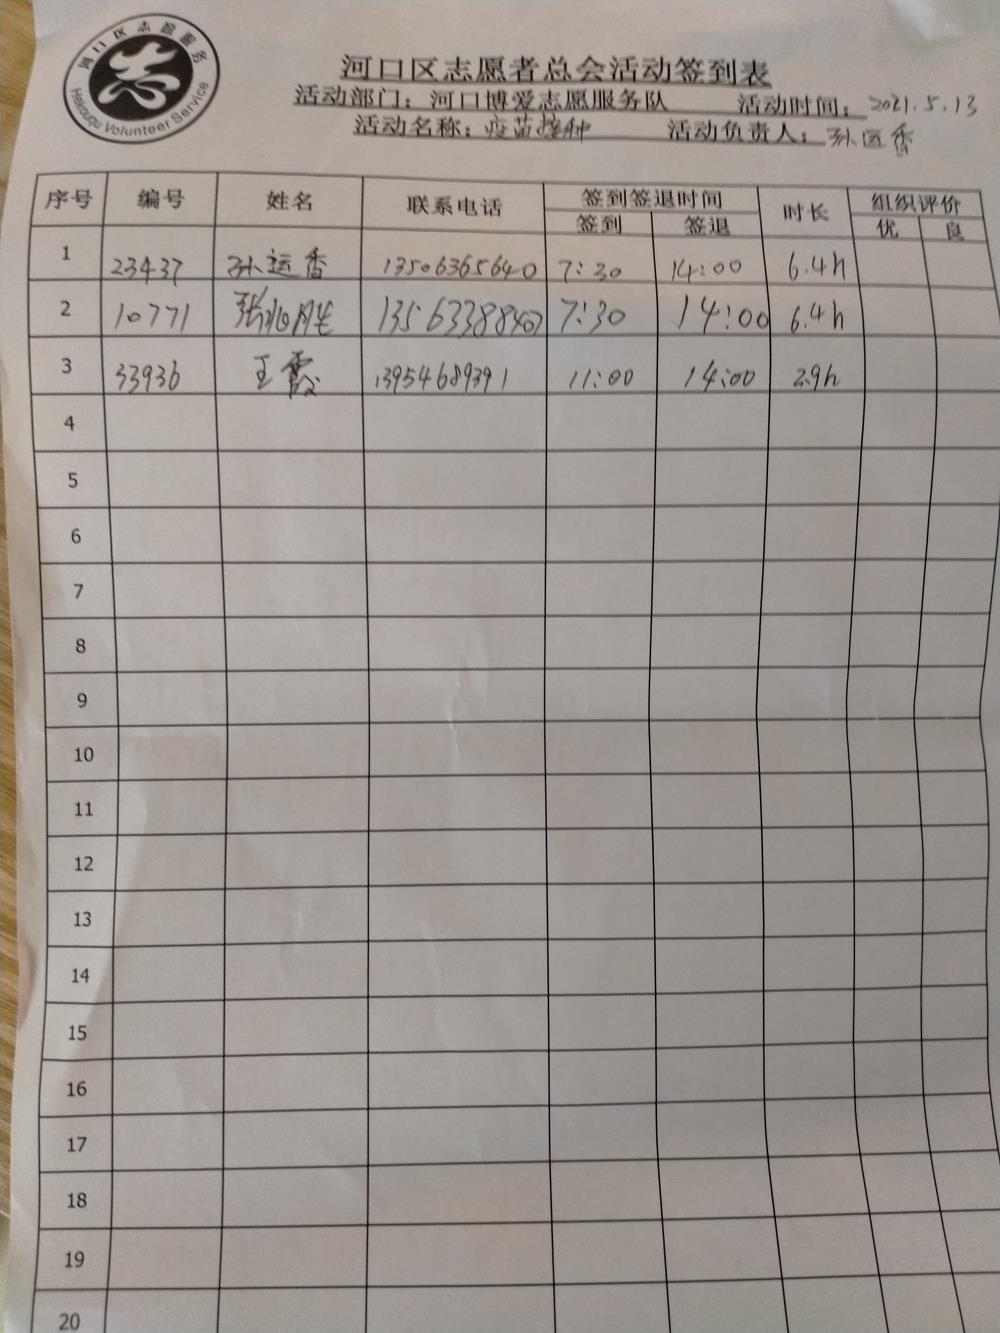 河口区志愿服务
Hekouqu Volunteer Service
河口区志愿者总会活动签到表
活动部门：河口博爱志愿服务队 活动时间：2021.5.13
活动名称：疫苗接种 活动负责人：孙运香
序号 编号 姓名 联系电话 签到签退时间 时长 组织评价
签到 签退 优 良
1 23437 孙运香 13506365640 7:30 14:00 6.4h
2 10771 7:30 14:00 6.4h
3 33936 王霞 13954689391 11:00 14:00 2.9h
4
5
6
7
8
9
10
11
12
13
14
15
16
17
18
19
20